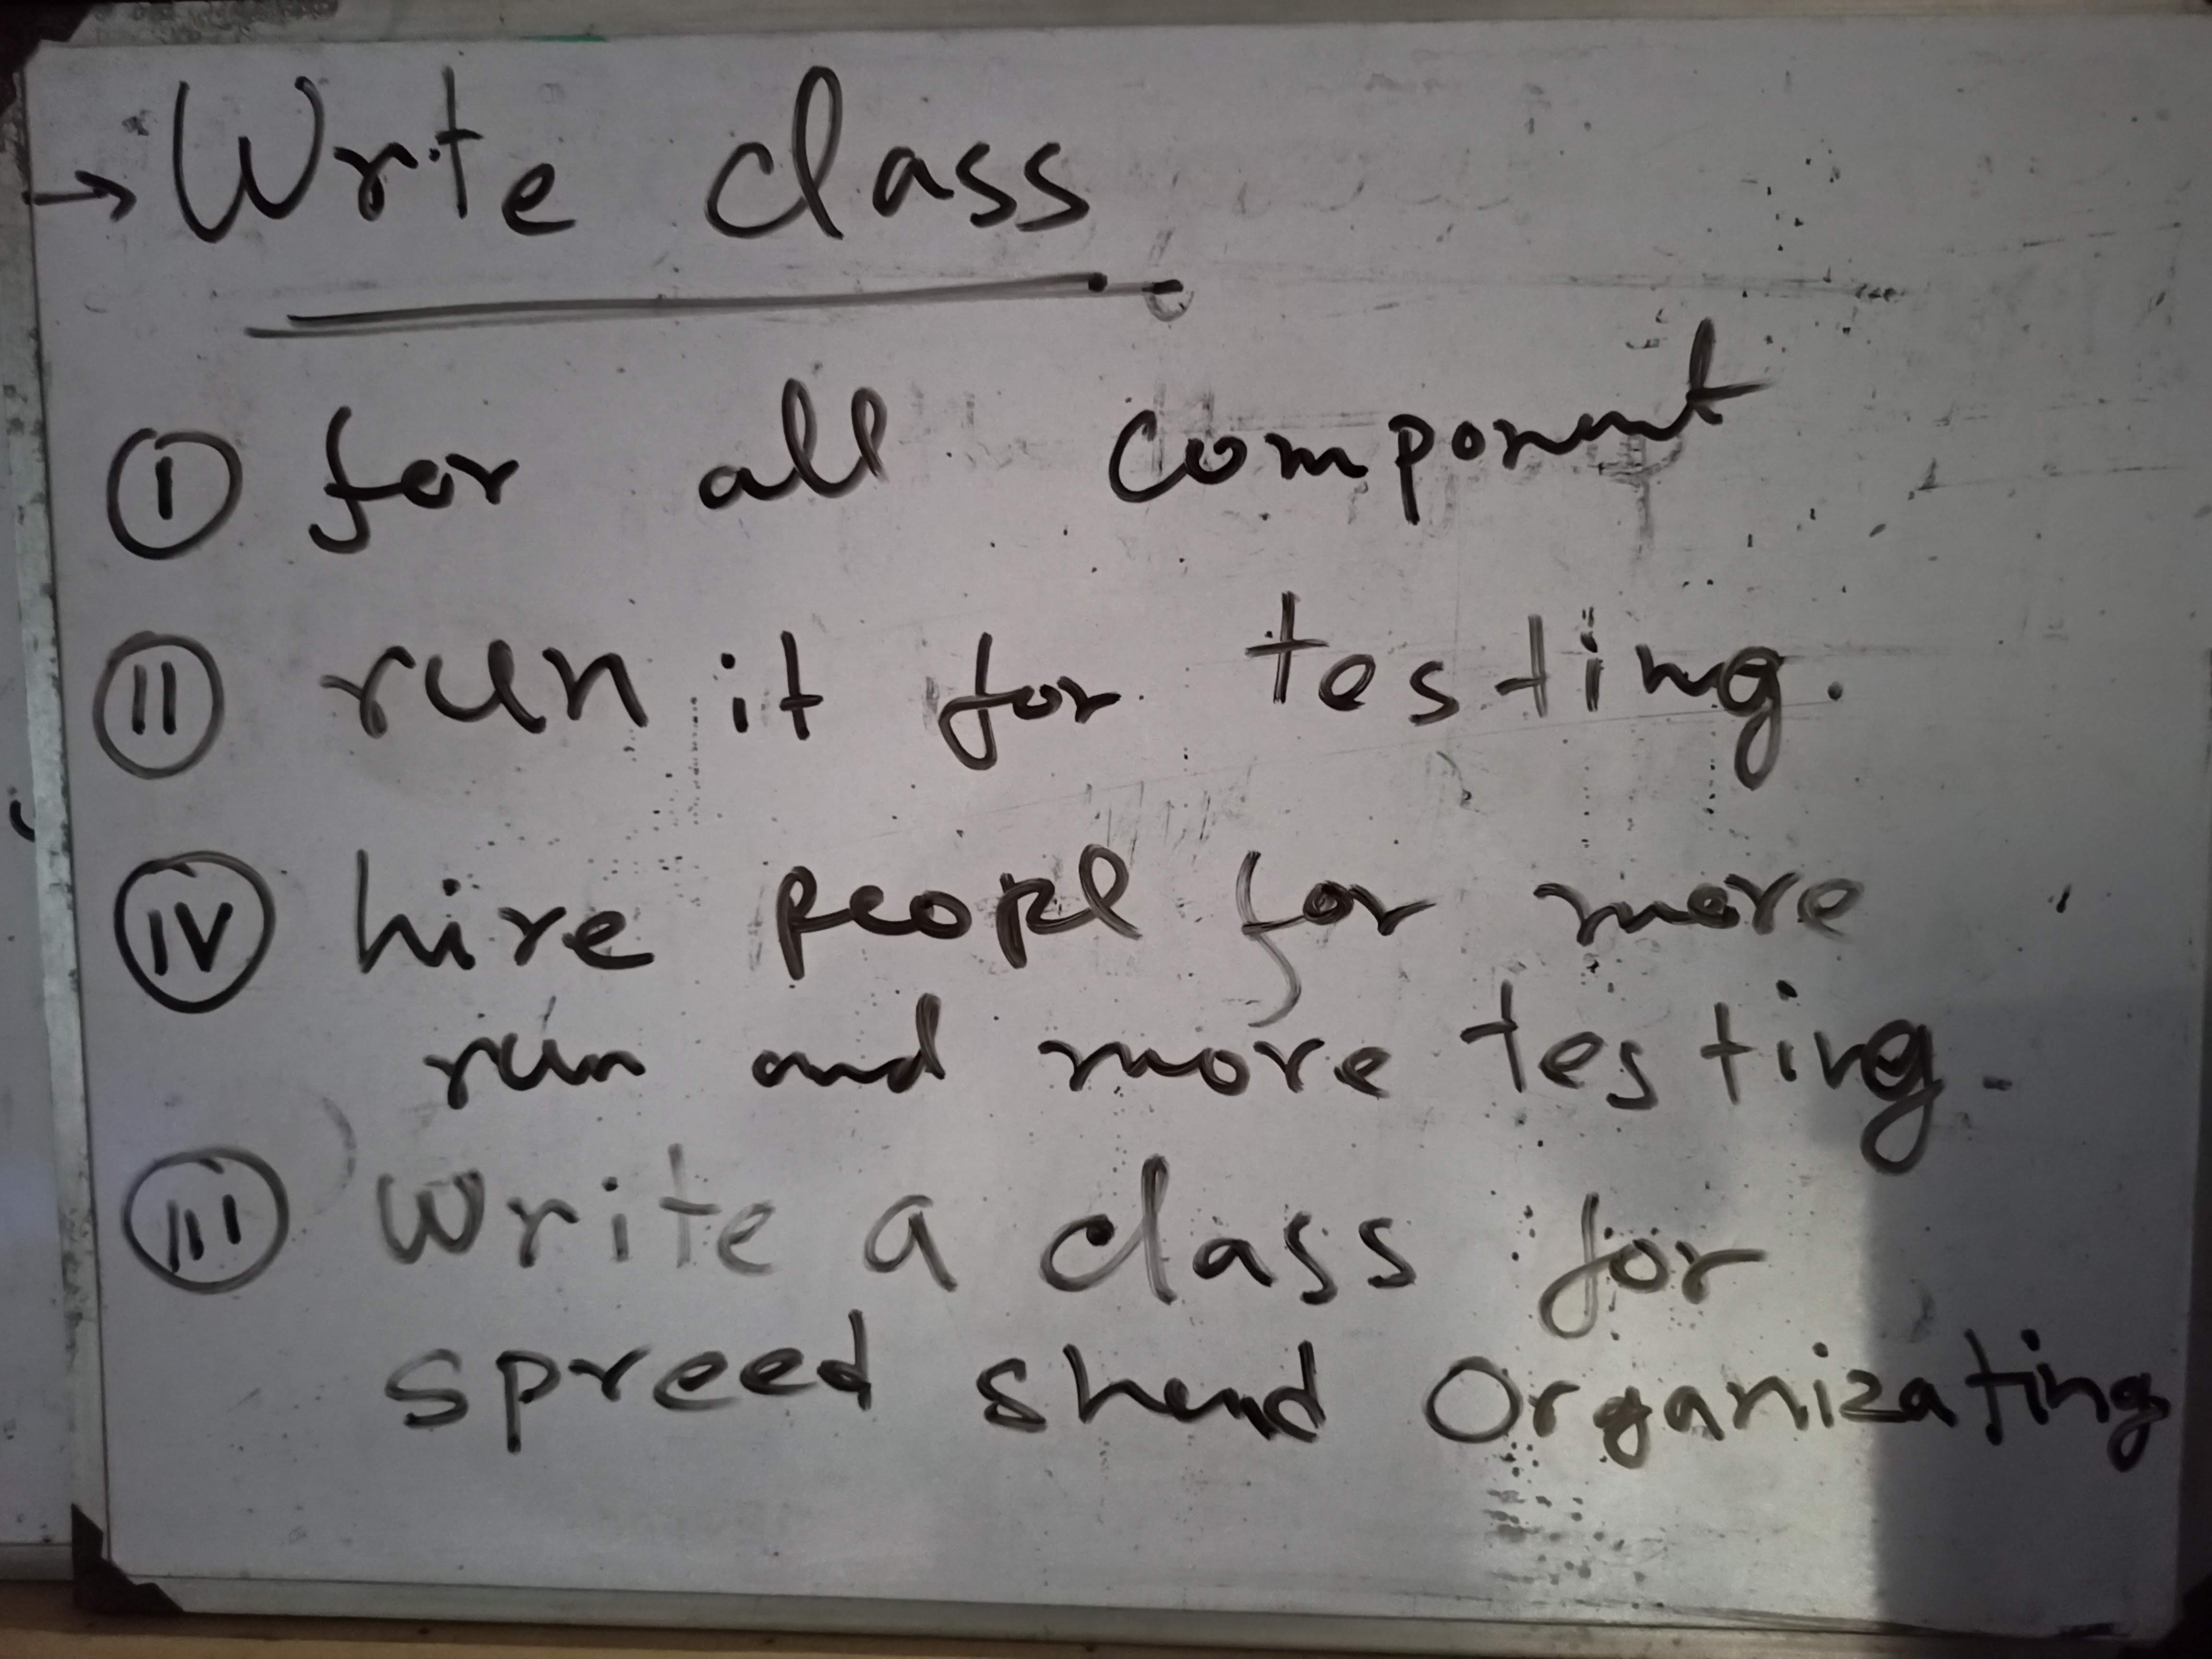 → Write class
(I) for all component
(II) run it for testing.
(IV) hire peopl for more
run and more testing.
(III) Write a class for
spreed shend Organizating